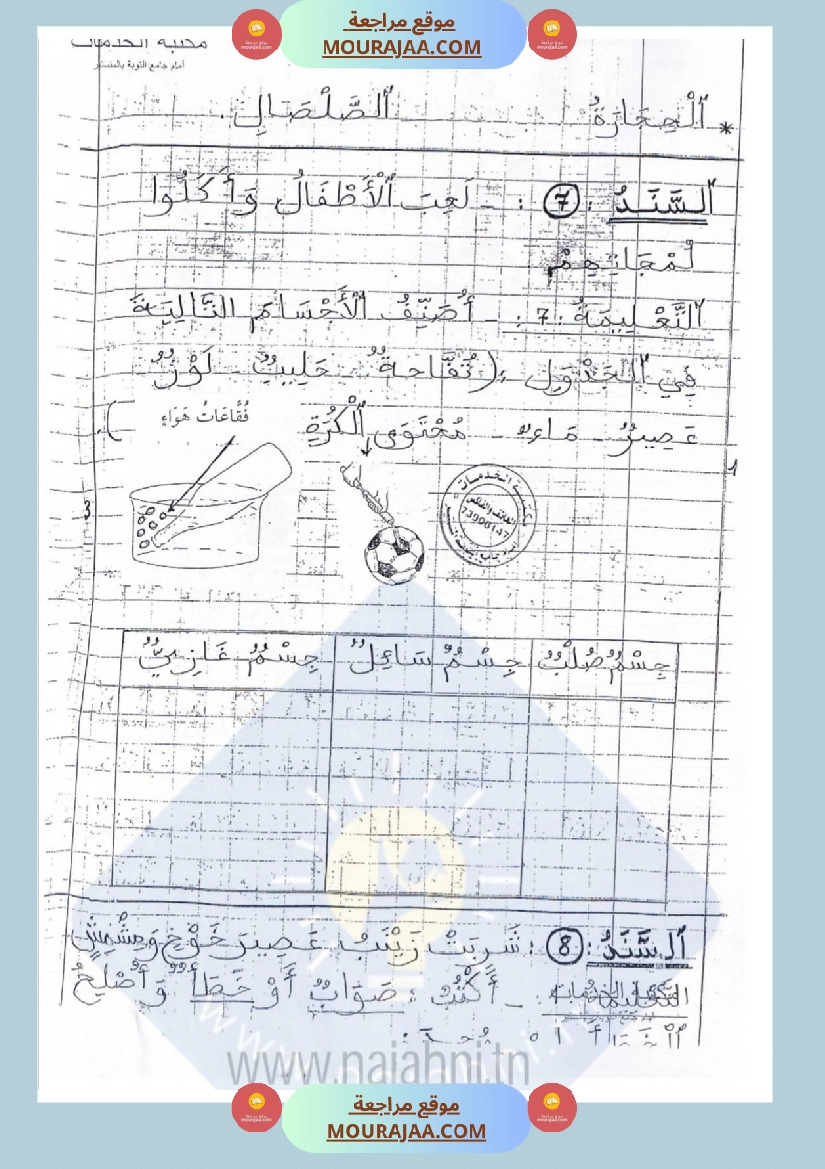 موقع مراجعة
MOURAJAA.COM
مكتبة الخدمات
أمام جامع التوبة
* اَلْحِجَارَةُ اَلصَّلْصَالِ.
اَلسَّنَدُ 7 : - لَعِبَ اَلْأَطْفَالُ وَأَكَلُوا
لُمْجَاتِهِمْ
اَلتَّعْلِيمَةُ : 7 : - أُصَنِّفُ اَلْأَجْسَامَ التَّالِيَةَ
فِي اَلْجَدْوَلِ :( تُفَّاحَةٌ - حَلِيبٌ - لَوْزٌ
عَصِيرٌ - مَاءٌ - مُحْتَوَى اَلْكُرَةِ
فُقَّاعَاتُ هَوَاءٍ ).
مكتبة الخدمات
73900147
جِسْمٌ صُلْبٌ جِسْمٌ سَائِلٌ جِسْمٌ غَازِيٌّ
اَلسَّنَدُ 8 : شَرِبَتْ زَيْنَبُ عَصِيرَ خَوْخٍ وَمِشْمِشٍ
التعليمة : - أَكْتُبُ : صَوَابٌ أَوْ خَطَأٌ وَأُصْلِحُ
www.najahni.tn
موقع مراجعة
MOURAJAA.COM